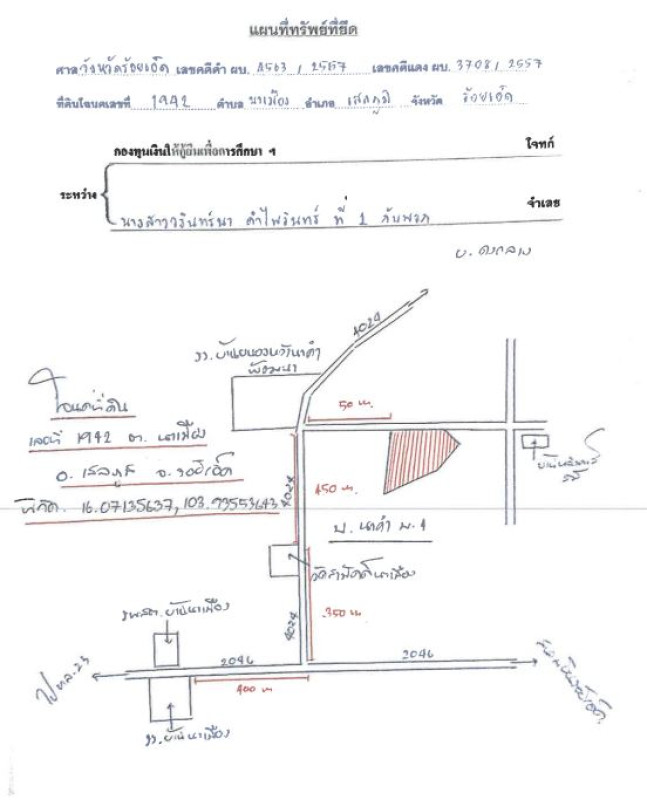 แผนที่ทรัพย์ที่ยึด
ศาลจังหวัดร้อยเอ็ด เลขคดีดำ ผบ. 4563 / 2557 เลขคดีแดง ผบ. 3708 / 2557
ที่ดินโฉนดเลขที่ 1942 ตำบล นาเมือง อำเภอ เสลภูมิ จังหวัด ร้อยเอ็ด
กองทุนเงินให้กู้ยืมเพื่อการศึกษา ฯ โจทก์
ระหว่าง
จำเลย
นางสาววรินทร์นา คำไพรินทร์ ที่ 1 กับพวก
4024
รร.บ้านหนองหัวนาคำ
พัฒนา
50 ม.
โฉนดที่ดิน
เลขที่ 1942 ต. นาเมือง
อ. เสลภูมิ จ.ร้อยเอ็ด
พิกัด. 16.07135637, 103.93553643
4024
450 ม.
บ. นาคำ ม.4
วัดสามัคคีนาเมือง
รพสต.บ้านนาเมือง
4024
350 ม.
2046
2046
ไป ทล.23
400 ม
รร.บ้านนาเมือง